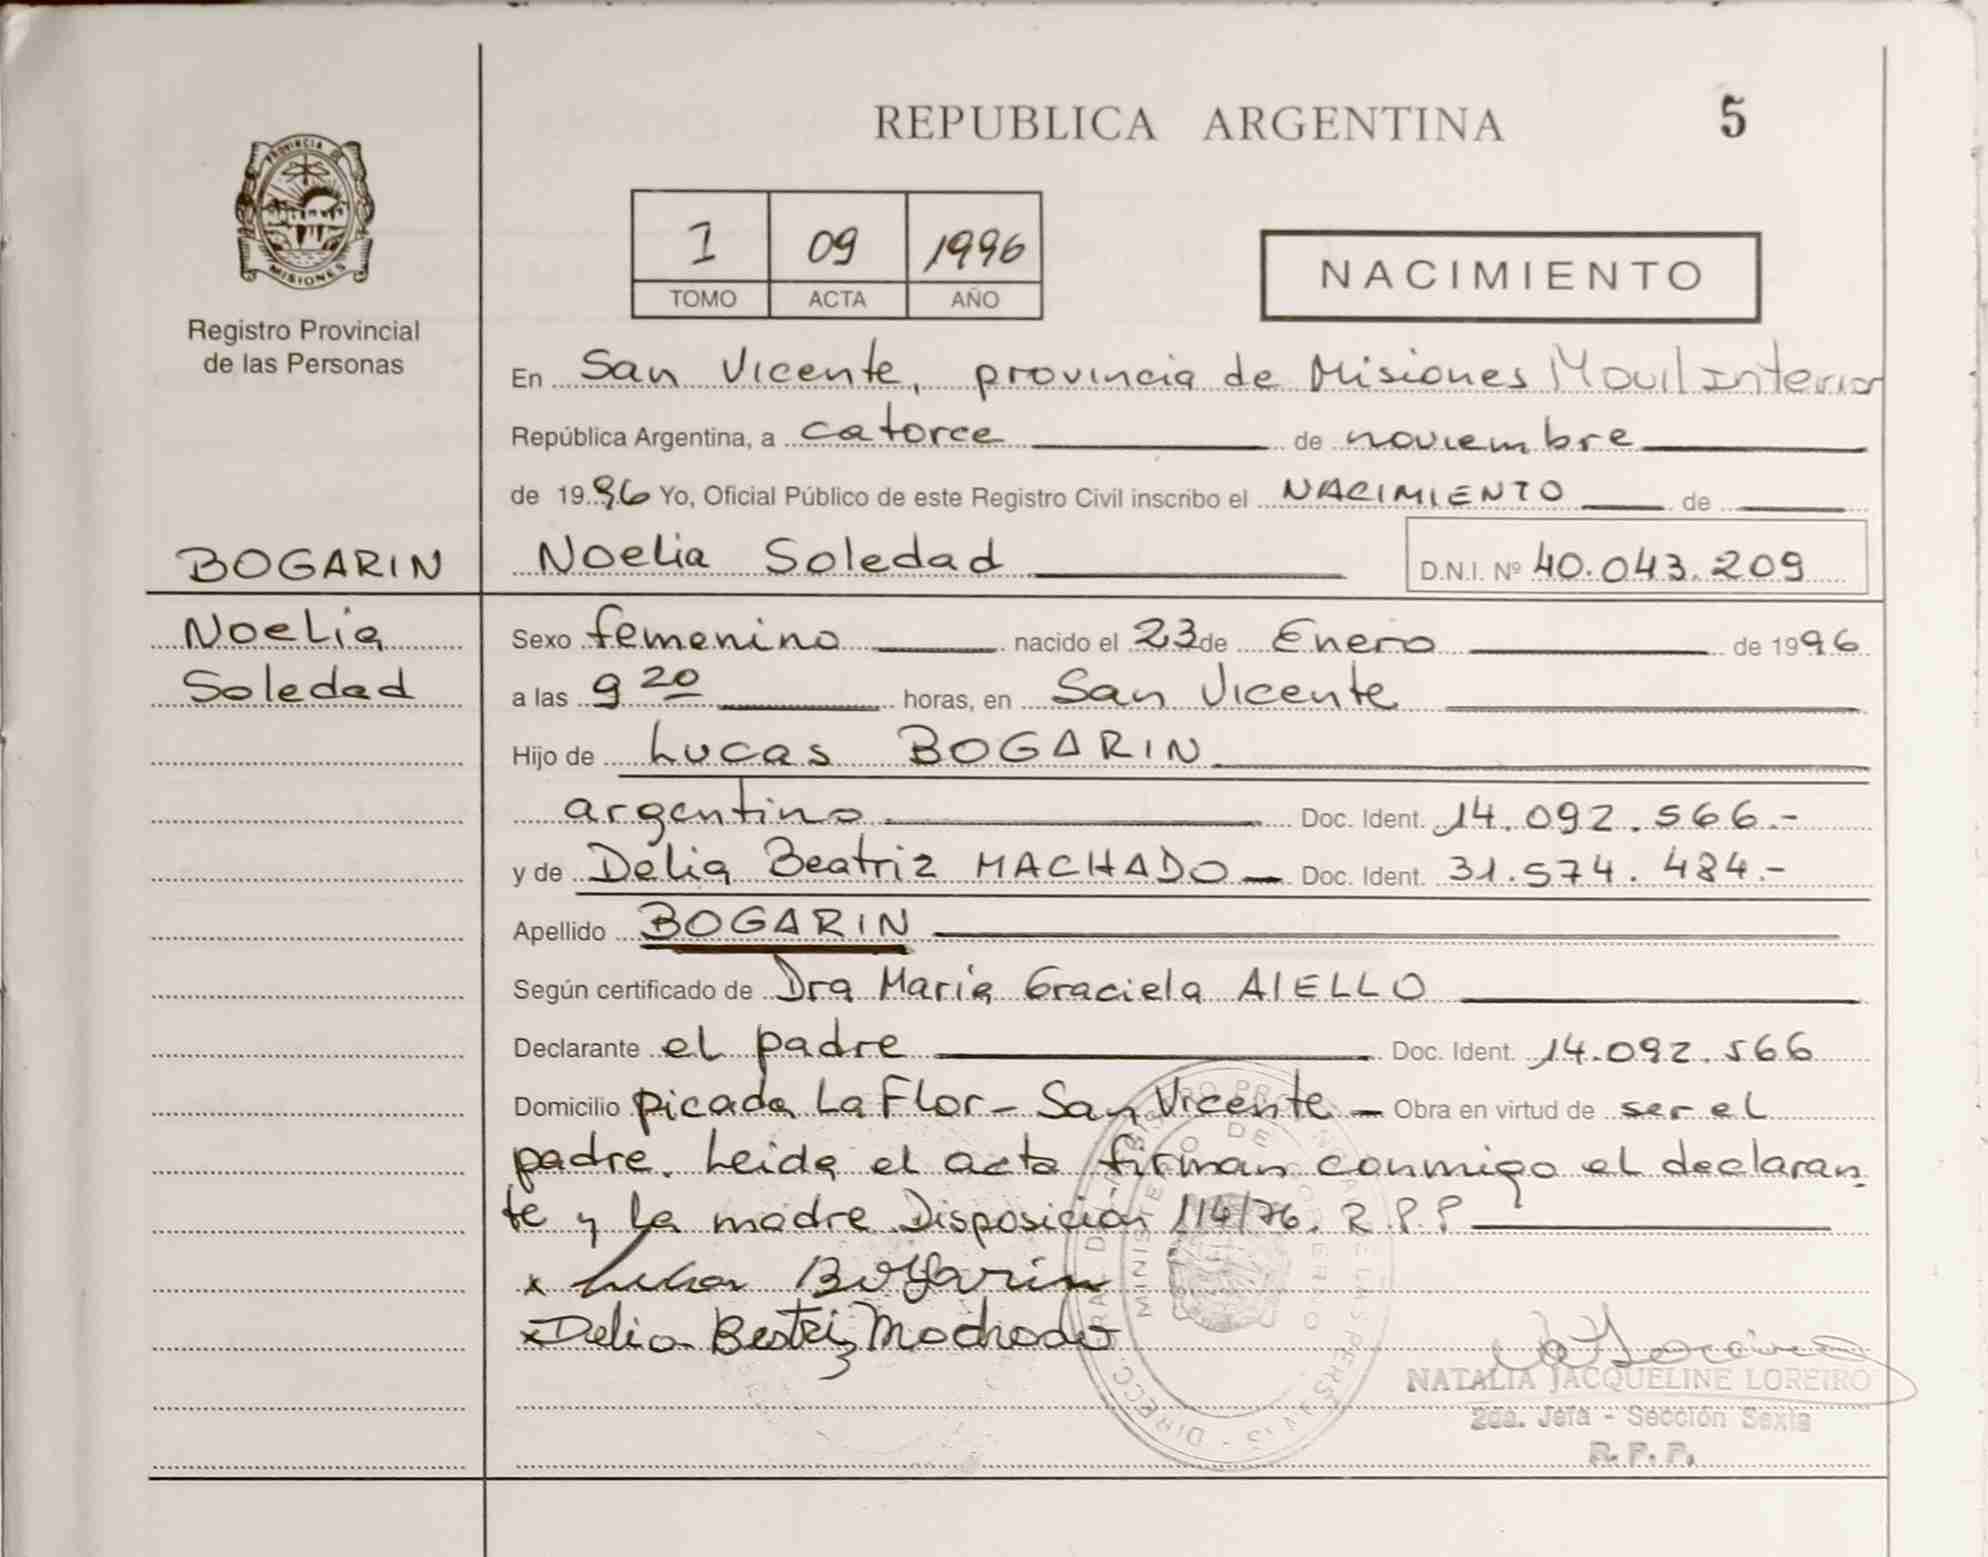 REPUBLICA ARGENTINA
5
PROVINCIA DE
MISIONES
Registro Provincial
de las Personas
1 09 1996
TOMO ACTA AÑO
NACIMIENTO
En San Vicente, provincia de Misiones Movil Interior
República Argentina, a catorce de noviembre
de 1996 Yo, Oficial Público de este Registro Civil inscribo el NACIMIENTO de
BOGARIN
Noelia Soledad
D.N.I. Nº 40.043.209
Noelia
Soledad
Sexo femenino nacido el 23 de Enero de 1996
a las 9 20 horas, en San Vicente
Hijo de Lucas BOGARIN
argentino Doc. Ident. 14.092.566.-
y de Delia Beatriz MACHADO - Doc. Ident. 31.574.484.-
Apellido BOGARIN
Según certificado de Dra Maria Graciela AIELLO
Declarante el padre Doc. Ident. 14.092.566
Domicilio picada La Flor - San Vicente - Obra en virtud de ser el
padre. Leida el acta firman conmigo el declaran-
te y la madre Disposición 114/76. R.P.P
x Lucas Bogarin
x Delia Beatriz Machado
NATALIA JACQUELINE LOREIRO
2da. Jefa - Sección Sexta
R. P. P.